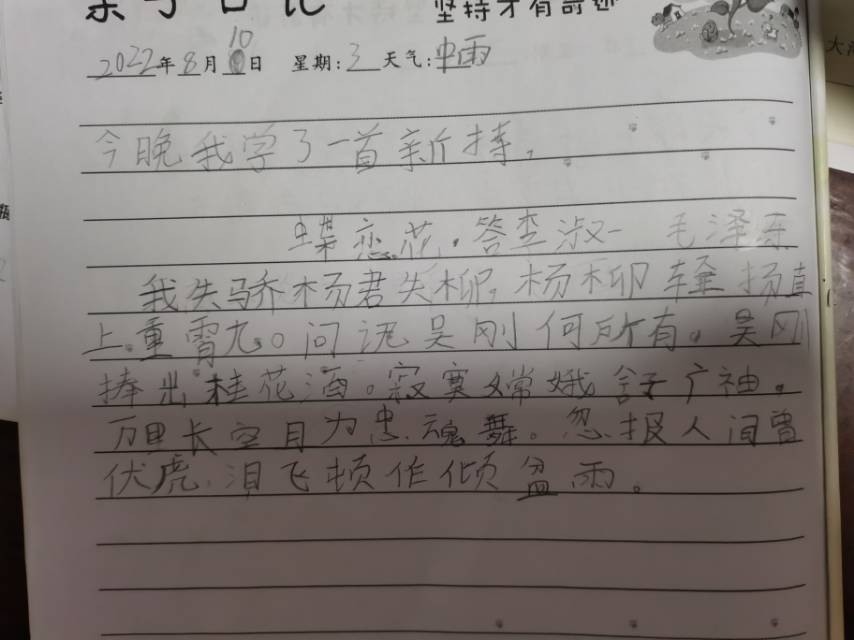 亲子日记 坚持才有奇迹
2022年8月10日 星期:3 天气:中雨
今晚我学了一首新持,
蝶恋花·答李淑一 毛泽东
我失骄杨君失柳,杨柳轻扬直
上重霄九。问讯吴刚何所有,吴刚
捧出桂花酒。寂寞嫦娥舒广袖。
万里长空且为忠魂舞。忽报人间曾
伏虎,泪飞顿作倾盆雨。